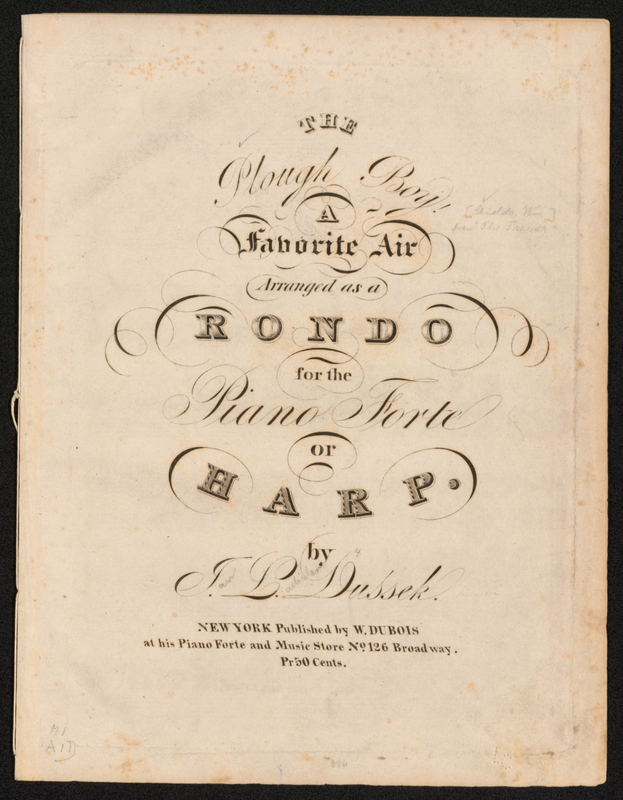 THE
Plough Boy,
A
Favorite Air
Arranged as a
RONDO
for the
Piano Forte
or
HARP.
by
J. L. Dussek.
NEW YORK Published by W. DUBOIS
at his Piano Forte and Music Store No. 126 Broadway.
Pr 50 Cents.